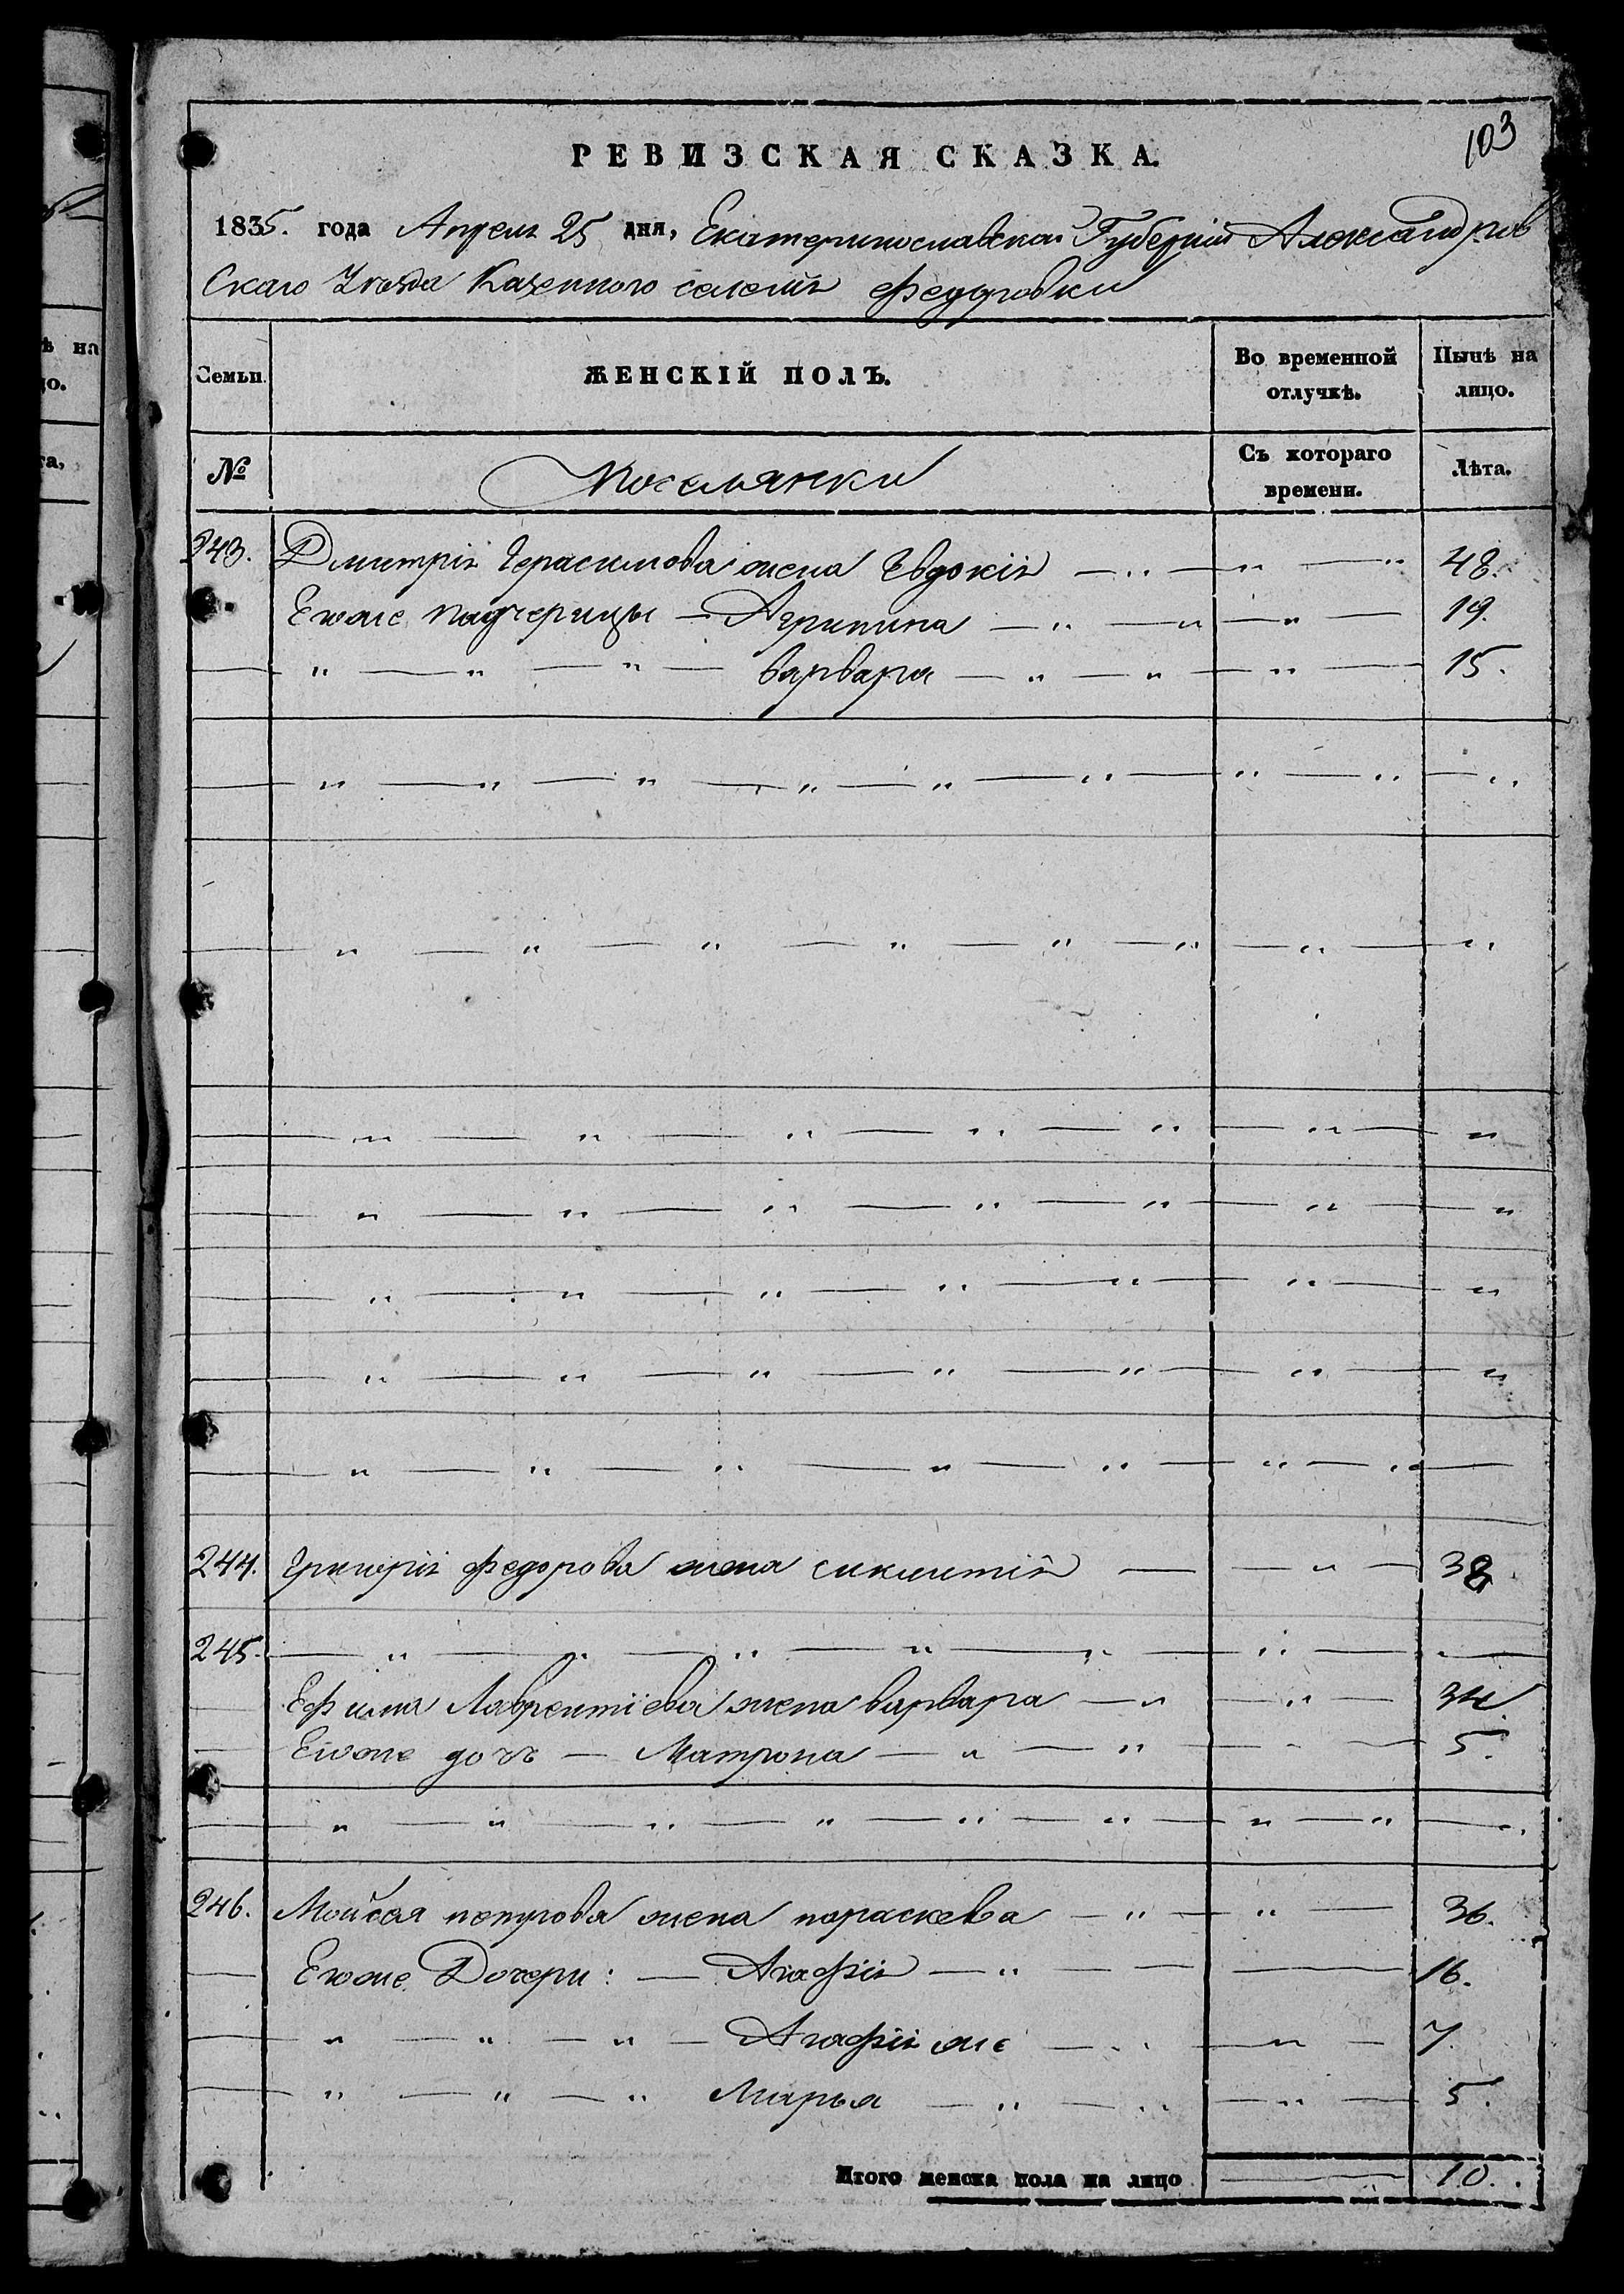 103
РЕВИЗСКАЯ СКАЗКА.
1835. года Апреля 25 дня, Екатеринославской Губернии Александров
скаго Уезда Казенного селения Федоровки
Семьи. ЖЕНСКІЙ ПОЛЪ. Во временной отлучкѣ. Нынѣ на лицо.
№ Поселянки Съ котораго времени. Лѣта.
243. Дмитрія Герасимова жена Евдокія — „ — „ — „ 48.
Егоже падчерицы — Агрипина — „ — „ — „ — 19.
— „ — „ — „ — Варвара — „ — „ — „ — 15.
244. Григорія Федорова жена Синклитія — — „ — 38
245. — „ — „ — „ — „ — „ — „ —
Ефима Лаврентіева жена Варвара — „ — „ — 34
Егоже дочь — Матрона — „ — „ — „ — 5.
246. Мойсея петрова жена параскева — „ — „ — 36.
Егоже Дочери: — Агафія — „ — — 16.
— „ — „ — „ — Агафія же — „ — „ — 7.
— „ — „ — „ Марья — „ — „ — „ — 5.
Итого женска пола на лицо — 10.
ѣ на
цо.
та,